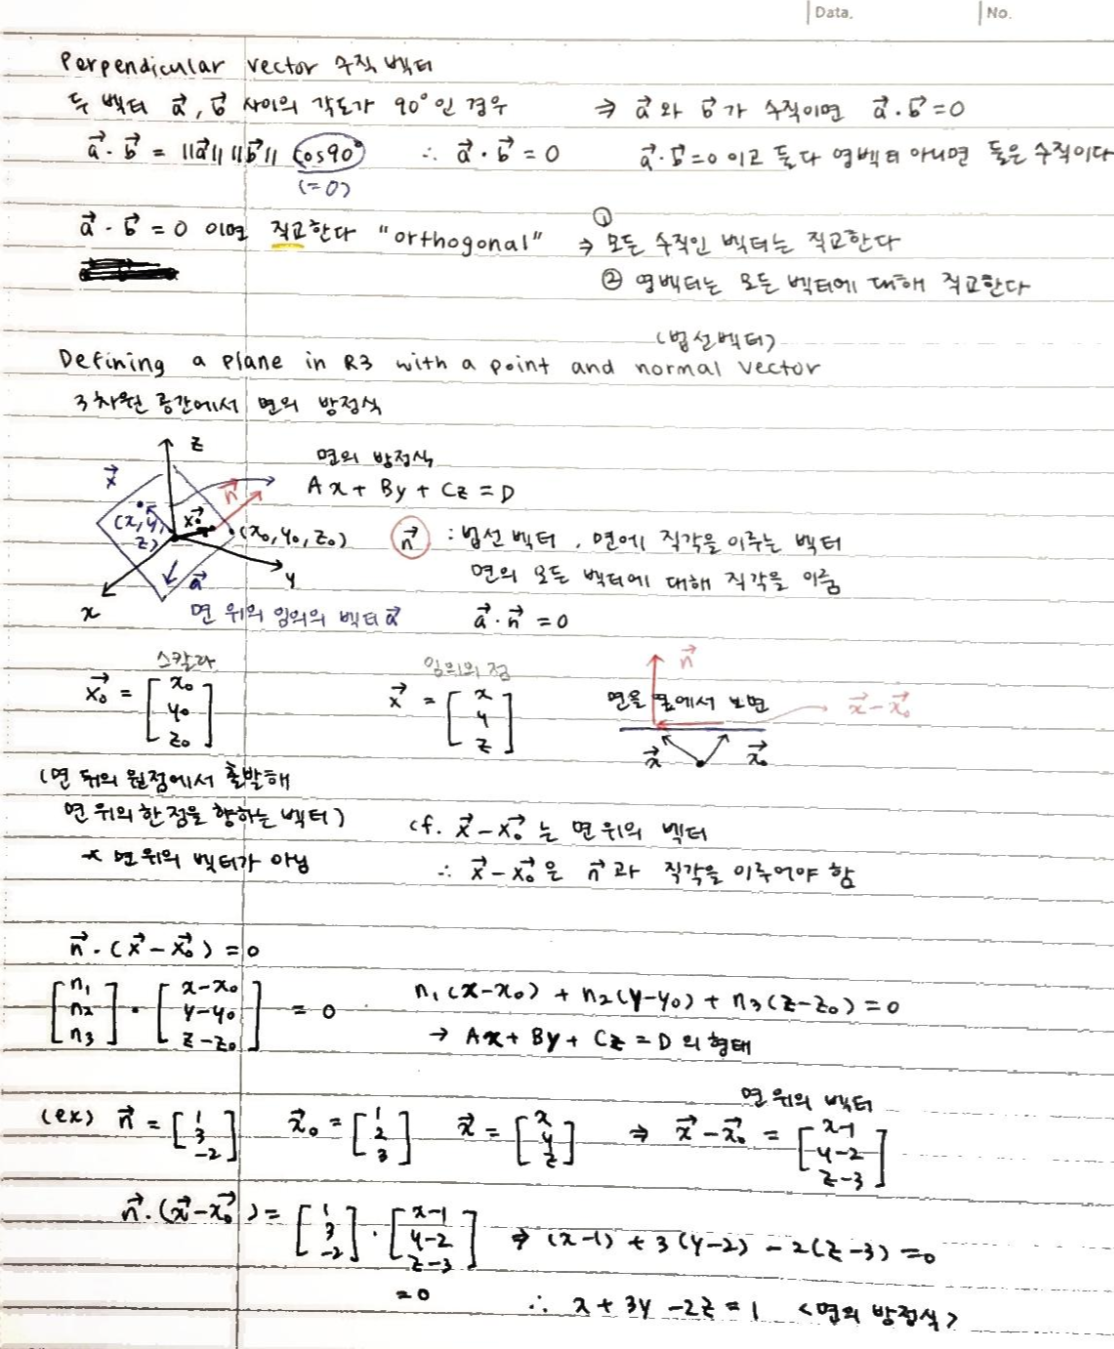 Data.
No.
Perpendicular vector 수직 벡터
두 벡터 a⃗, b⃗ 사이의 각도가 90°인 경우 ⇒ a⃗와 b⃗가 수직이면 a⃗·b⃗=0
a⃗·b⃗ = ||a⃗|| ||b⃗|| cos90° ∴ a⃗·b⃗ = 0 a⃗·b⃗=0 이고 둘다 영벡터 아니면 둘은 수직이다
(=0)
a⃗·b⃗ = 0 이면 직교한다 "orthogonal" ⇒ ① 모든 수직인 벡터는 직교한다
② 영벡터는 모든 벡터에 대해 직교한다
(법선벡터)
Defining a plane in R3 with a point and normal vector
3차원 공간에서 면의 방정식
z
면의 방정식
x⃗
n⃗
Ax + By + Cz = D
(x, y, z)
x₀⃗
(x₀, y₀, z₀)
n⃗ : 법선 벡터, 면에 직각을 이루는 벡터
면의 모든 벡터에 대해 직각을 이룸
x
a⃗
y
면 위의 임의의 벡터 a⃗
a⃗·n⃗ = 0
스칼라
임의의 점
n⃗
x₀⃗ = [x₀ y₀ z₀]
x⃗ = [x y z]
면을 옆에서 보면
x⃗-x₀⃗
x⃗
x₀⃗
(면 뒤의 원점에서 출발해
면 위의 한 점을 향하는 벡터)
cf. x⃗-x₀⃗는 면 위의 벡터
* 면 위의 벡터가 아님
∴ x⃗-x₀⃗은 n⃗과 직각을 이루어야 함
n⃗·(x⃗-x₀⃗)=0
[n₁ n₂ n₃]·[x-x₀ y-y₀ z-z₀] = 0 n₁(x-x₀) + n₂(y-y₀) + n₃(z-z₀) = 0
→ Ax + By + Cz = D 의 형태
면 위의 벡터
(ex) n⃗ = [1 3 -2] x⃗₀ = [1 2 3] x⃗ = [x y z] ⇒ x⃗-x⃗₀ = [x-1 y-2 z-3]
n⃗·(x⃗-x₀⃗) = [1 3 -2]·[x-1 y-2 z-3] ⇒ (x-1) + 3(y-2) - 2(z-3) = 0
=0 ∴ x + 3y - 2z = 1 <면의 방정식>